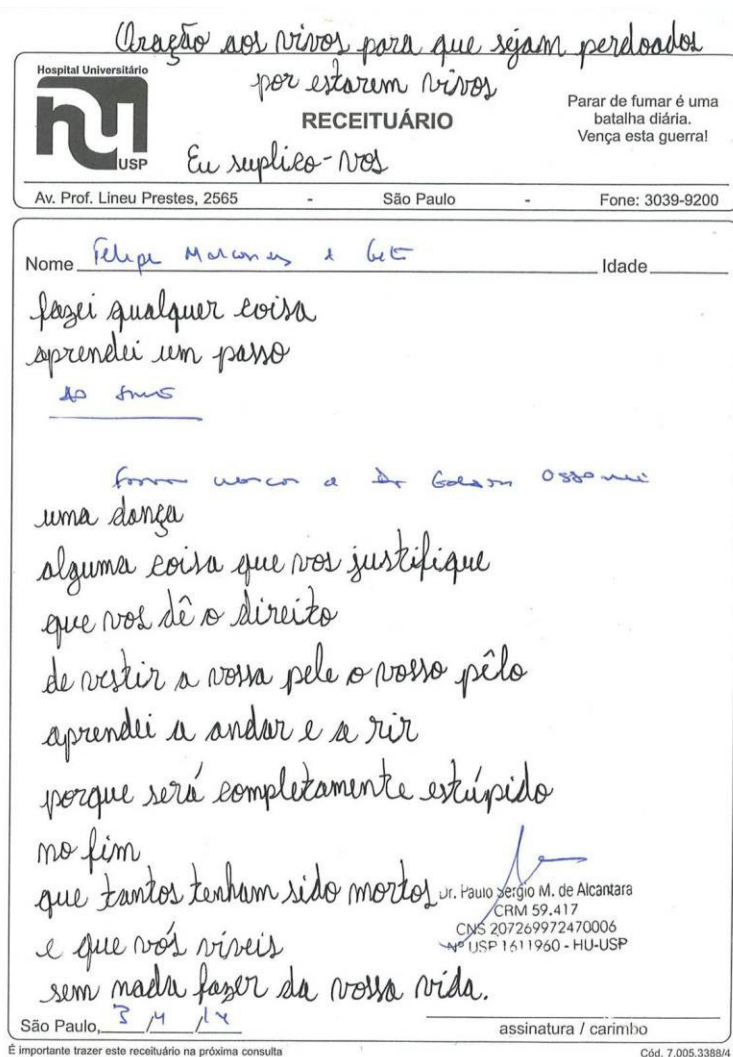 Oração aos vivos para que sejam perdoados
por estarem vivos
Hospital Universitário
hu
USP
RECEITUÁRIO
Parar de fumar é uma
batalha diária.
Vença esta guerra!
Eu suplico-vos
Av. Prof. Lineu Prestes, 2565 - São Paulo - Fone: 3039-9200
Nome Felipe Idade
fazei qualquer coisa
aprendei um passo
uma dança
alguma coisa que vos justifique
que vos dê o direito
de vestir a vossa pele o vosso pêlo
aprendei a andar e a rir
porque será completamente estúpido
no fim
que tantos tenham sido mortos
Dr. Paulo Sergio M. de Alcantara
CRM 59.417
CNS 207269972470006
Nº USP 1611960 - HU-USP
e que vós viveis
sem nada fazer da vossa vida.
São Paulo, 3 / 4 / 14
assinatura / carimbo
É importante trazer este receituário na próxima consulta
Cód. 7.005.3388/4